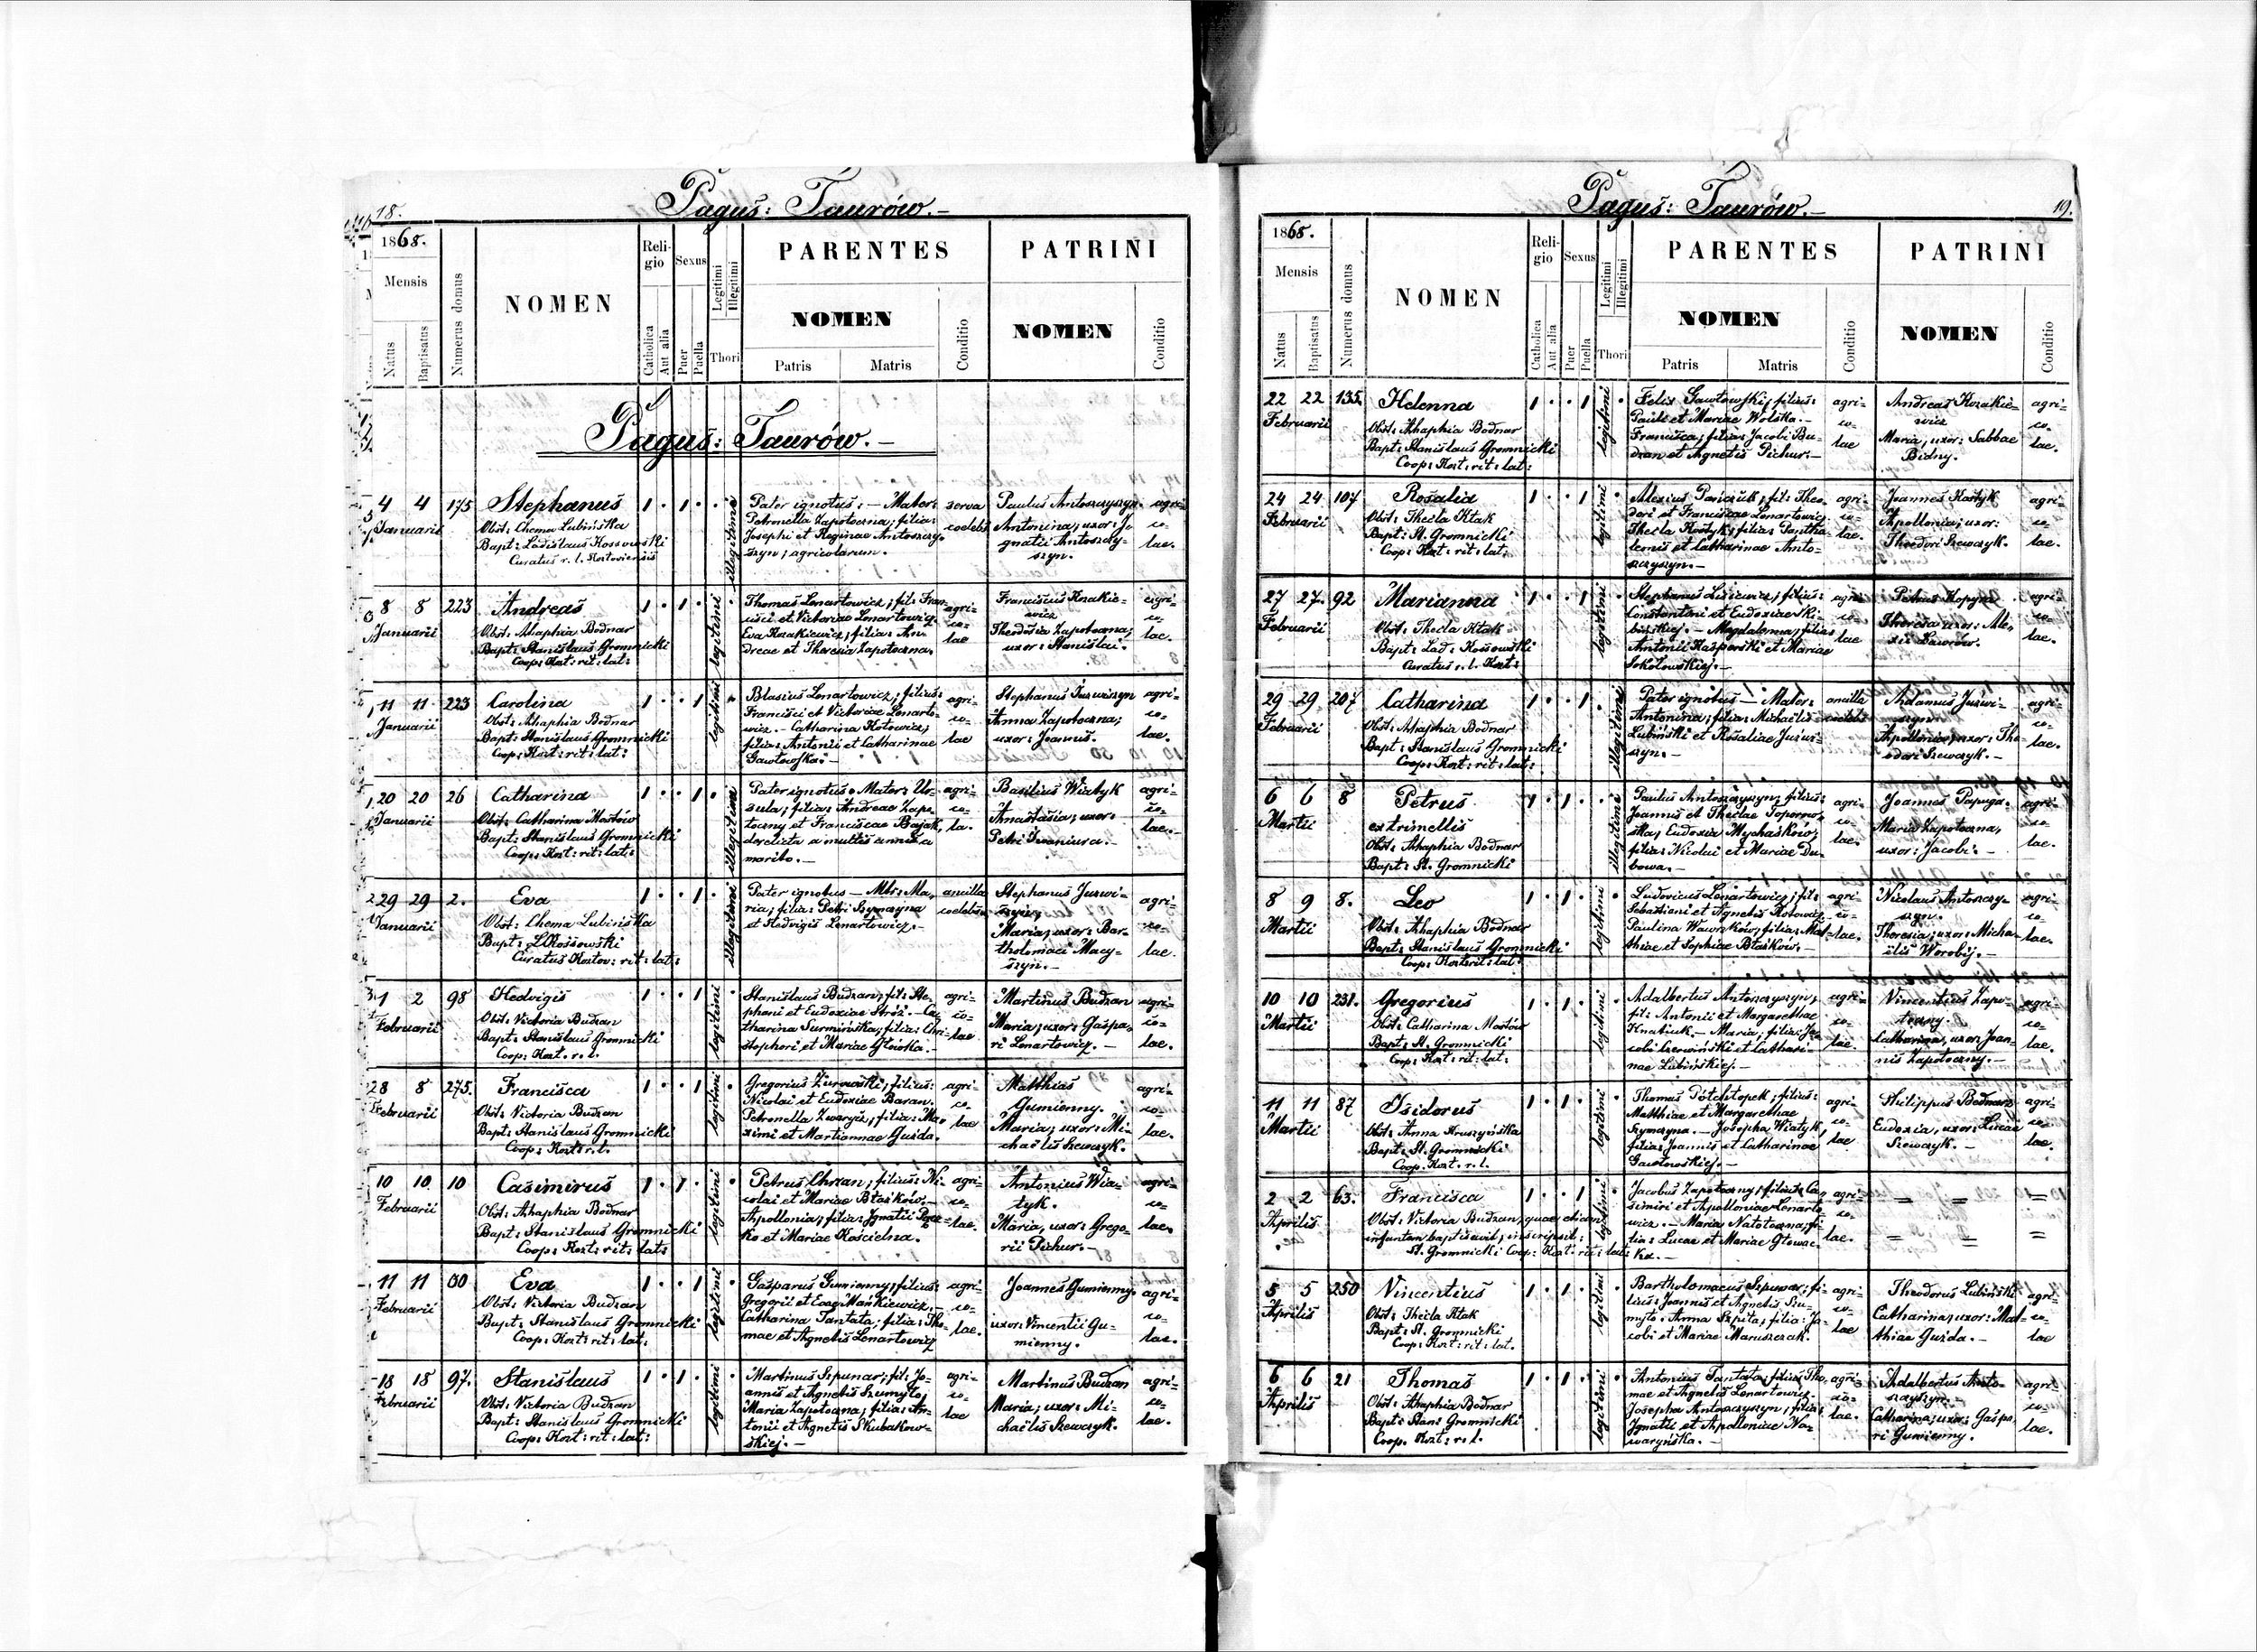 18.
Pagus: Taurów.—
1868.
Mensis
Natus
Baptisatus
Numerus domus
NOMEN
Religio
Catholica
Aut alia
Sexus
Puer
Puella
Legitimi
Illegitimi
Thori
PARENTES
NOMEN
Patris
Matris
Conditio
PATRINI
NOMEN
Conditio
Pagus: Taurów.—
4 4 175 Stephanus 1 · 1 ·
Januarii
Obst: Chema Lubińska
Bapt: Ladislaus Kossowski
Curatus r. l. Koztoviensis
illegitimi
Pater ignotus: — Mater:
Petronella Zapotoczna; filia:
Josephi et Reginae Antoszczy-
szyn; agricolarum.
serva
coelebs
Paulus Antoszczyszyn.
Antonina; uxor: J-
gnatii Antoszczy-
szyn.
agri-
co-
lae.
8 8 223 Andreas 1 · 1 ·
Januarii
Obst: Ahaphia Bodnar
Bapt: Stanislaus Gromnicki
Coop: Kozt: rit: lat:
legitimi
Thomas Lenartowicz; fil: Fran-
cisci et Victoriae Lenartowicz
Eva Kozakiewicz; filia: An-
dreae et Theresia Zapotoczna.
agri-
co-
lae
Theodosia Zapotoczna;
uxor: Stanislai.
agri-
co-
lae.
11 11 223 Carolina 1 · · 1
Januarii
Obst: Ahaphia Bodnar
Bapt: Stanislaus Gromnicki
Coop: Kozt: rit: lat:
legitimi
Blasius Lenartowicz; filius:
Francisci et Victoriae Lenarto-
wicz. — Catharina Kotowicz;
filia: Antonii et Catharinae
Gawłowska. —
agri-
co-
lae
Stephanus Juzwiszyn
Anna Zapotoczna;
uxor: Joannis.
agri-
co-
lae.
20 20 26 Catharina 1 · · 1
Januarii
Obst: Catharina Mostów
Bapt: Stanislaus Gromnicki
Coop: Kozt: rit: lat:
illegitimi
Pater ignotus. Mater: Ur-
sula; filia: Andreae Zapo-
toczny et Franciscae Bajak,
derelicta a multis annis a
marito. —
agri-
co-
la.
Basilius Wiatyk
Anastasia; uxor:
Petri Iwaniura. —
agri-
co-
lae.
29 29 2. Eva 1 · · 1
Januarii
Obst: Chema Lubińska
Bapt: L. Kossowski
Curatus Koztov: rit: lat:
illegitimi
Pater ignotus — Mtr: Ma-
ria; filia: Petri Szymczyna
et Hedvigis Lenartowicz. —
ancilla
coelebs
Stephanus Juzwi-
szyn,
Maria; uxor: Bar-
tholomaei Macy-
szyn. —
agri-
co-
lae.
1 2 98 Hedvigis 1 · · 1
Februarii
Obst: Victoria Budzan
Bapt: Stanislaus Gromnicki
Coop: Kozt. r. l.
legitimi
Stanislaus Budzan; fil: Ste-
phani et Eudoxiae Stróż. — Ca-
tharina Surmińska; filia: Chri-
stophori et Mariae Głowka. —
agri-
co-
lae
Martinus Budzan
Maria; uxor: Gaspa-
ri Lenartowicz. —
agri-
co-
lae.
8 8 275. Francisca 1 · · 1
Februarii
Obst: Victoria Budzan
Bapt: Stanislaus Gromnicki
Coop: Kozt: r. l.
legitimi
Gregorius Żurowski; filius:
Nicolai et Eudoxiae Baran.
Petronella Zwarycz; filia: Ma-
ximi et Martiannae Guzda.
agri-
co-
lae
Matthias
Gumienny.
Maria; uxor: Mi-
chaëlis Szewczyk.
agri-
co-
lae.
10 10 10 Casimirus 1 · 1 ·
Februarii
Obst: Ahaphia Bodnar
Bapt: Stanislaus Gromnicki
Coop: Kozt: rit: lat:
legitimi
Petrus Chrzan; filius: Ni-
colai et Mariae Błaśków. —
Apollonia; filia: Ignatii
et Mariae Kościelna.
agri-
co-
lae.
Antonius Wia-
tyk.
Maria, uxor: Grego-
rii Pichur. —
agri-
co-
lae.
11 11 Eva 1 · · 1
Februarii
Obst: Victoria Budzan
Bapt: Stanislaus Gromnicki
Coop: Kozt: rit: lat:
legitimi
Gasparus Gumienny; filius:
Gregorii et Evae Mańkiewicz. —
Catharina Tantata; filia: Tho-
mae et Agnetis Lenartowicz
agri-
co-
lae.
Joannes Gumienny.
uxor: Vincentii Gu-
mienny.
agri-
co-
lae.
18 18 97. Stanislaus 1 · 1 ·
Februarii
Obst: Victoria Budzan
Bapt: Stanislaus Gromnicki
Coop: Kozt: rit: lat:
legitimi
Martinus Szpunar; fil: Jo-
annis et Agnetis Szumyło;
Maria Zapotoczna; filia: An-
tonii et Agnetis Skubakow-
skiej. —
agri-
co-
lae
Martinus Budzan
Maria; uxor: Mi-
chaëlis Szewczyk.
agri-
co-
lae.
Pagus: Taurów.—
19.
1868.
Mensis
Natus
Baptisatus
Numerus domus
NOMEN
Religio
Catholica
Aut alia
Sexus
Puer
Puella
Legitimi
Illegitimi
Thori
PARENTES
NOMEN
Patris
Matris
Conditio
PATRINI
NOMEN
Conditio
22 22 135. Helenna 1 · · 1
Februarii
Obst: Ahaphia Bodnar
Bapt: Stanislaus Gromnicki
Coop: Kozt: rit: lat:
legitimi
Felix Gawłowski; filius:
Pauli et Mariae Wolska. —
Francisca; filia: Jacobi Bu-
dzan et Agnetis Pichur. —
agri-
co-
lae
Andreas Kozakie-
wicz
Maria; uxor: Sabbae
Bidny.
agri-
co-
lae.
24 24 107 Rosalia 1 · · 1
Februarii
Obst: Thecla Ktak
Bapt: St. Gromnicki
Coop: Kozt: rit: lat:
legitimi
Alexius Panczuk; fil: Theo-
dori et Franciscae Lenartowicz
Thecla Kostyk; filia: Pantha-
lemis et Catharinae Anto-
szczyszyn. —
agri-
co-
lae.
Joannes Kostyk
Apollonia; uxor:
Theodori Szewczyk.
agri-
co-
lae.
27 27. 92 Marianna 1 · · 1
Februarii
Obst: Thecla Ktak
Bapt: Lad: Kossowski
Curatus r. l. Kozt:
legitimi
Stephanus Lisiewicz; filius:
Constantini et Eudoxiae Ski-
bińskiej. — Magdalenna; filia:
Antonii Kasperski et Mariae
Sokołowskiej. —
agri-
co-
lae
Petrus Kopyra
Theresia uxor: Ale-
xii Ławrów.
agri-
co-
lae.
29 29 207 Catharina 1 · · 1
Februarii
Obst: Ahaphia Bodnar
Bapt: Stanislaus Gromnicki
Coop: Kozt: rit: lat:
illegitimi
Pater ignotus — Mater:
Antonina; filia: Michaëlis
Lubiński et Rosaliae Juzwi-
szyn. —
ancilla
coelebs
Adamus Juzwi-
szyn
Apollonia; uxor: The-
odori Szewczyk. —
agri-
co-
lae.
6 6 8 Petrus 1 · 1 ·
Martii
ex trimellis
Obst: Ahaphia Bodnar
Bapt: St. Gromnicki
illegitimi
Paulus Antoszczyszyn; filius:
Joannis et Theclae Toporow-
ska; Eudoxia Mychaśków;
filia: Nicolai et Mariae Du-
bowa. —
agri-
co-
lae.
Joannes Papuga.
Maria Zapotoczna,
uxor: Jacobi. —
agri-
co-
lae.
8 9 8. Leo 1 · 1 ·
Martii
Obst: Ahaphia Bodnar
Bapt: Stanislaus Gromnicki
Coop: Kozt: rit: lat:
legitimi
Ludovicus Lenartowicz; fil:
Sebastiani et Agnetis Kotowicz.
Paulina Wawrków; filia: Mat-
thiae et Sophiae Błaśków. —
agri-
co-
lae.
Nicolaus Antoszczy-
szyn.
Theresia; uxor: Micha-
ëlis Worobij. —
agri-
co-
lae.
10 10 231. Gregorius 1 · 1 ·
Martii
Obst: Catharina Mostów
Bapt: St. Gromnicki
Coop: Kozt: rit: lat:
legitimi
Adalbertus Antoszczyszyn;
fil: Antonii et Margarethae
Knatiuk. — Maria; filia: Ja-
cobi Czerwiński et Cathari-
nae Lubińskiej. —
agri-
co-
lae.
Vincentius Zapo-
toczny.
Catharina, uxor: Joan-
nis Zapotoczny. —
agri-
co-
lae.
11 11 87 Isidorus 1 · 1 ·
Martii
Obst: Anna Kruszyńska
Bapt: St. Gromnicki
Coop. Kozt. r. l.
legitimi
Thomas Półchłopek; filius:
Matthiae et Margarethae
Szymczyna. — Josepha Wiatyk,
filia: Joannis et Catharinae
Gawłowskiej. —
agri-
co-
lae
Philippus Bodnar
Eudoxia, uxor: Lucae
Szewczyk. —
agri-
co-
lae.
2 2 63. Francisca 1 · · 1
Aprilis
Obst: Victoria Budzan, quae etiam
infantem baptisavit; inscripsit:
St. Gromnicki Coop: Kozt: rit: lat:
legitimi
Jacobus Zapotoczny; filius: Ca-
simiri et Apolloniae Lenarto-
wicz. — Maria Natotoczna; fi-
lia: Lucae et Mariae Głowac-
ka. —
agri-
co-
lae.
= = =
= = =
5 5 250 Vincentius 1 · 1 ·
Aprilis
Obst: Thecla Ktak
Bapt: St. Gromnicki
Coop: Kozt: rit: lat.
legitimi
Bartholomaeus Szpunar; fi-
lius: Joannis et Agnetis Szu-
myło. Anna Szpita; filia: Ja-
cobi et Mariae Maruszczak.
agri-
co-
lae
Theodorus Lubiński
Catharina; uxor: Mat-
thiae Guzda. —
agri-
co-
lae
6 6 21 Thomas 1 · 1 ·
Aprilis
Obst: Ahaphia Bodnar
Bapt: Stan: Gromnicki
Coop. Kozt: r. l.
legitimi
Antonius Tantata; filius: Tho-
mae et Agnetis Lenartowicz.
Josepha Antoszczyszyn; filia:
Ignatii et Apolloniae Na-
waryńska. —
agri-
co-
lae.
Adalbertus Anto-
szczyszyn.
Catharina; uxor: Gaspa-
ri Gumienny.
agri-
co-
lae.